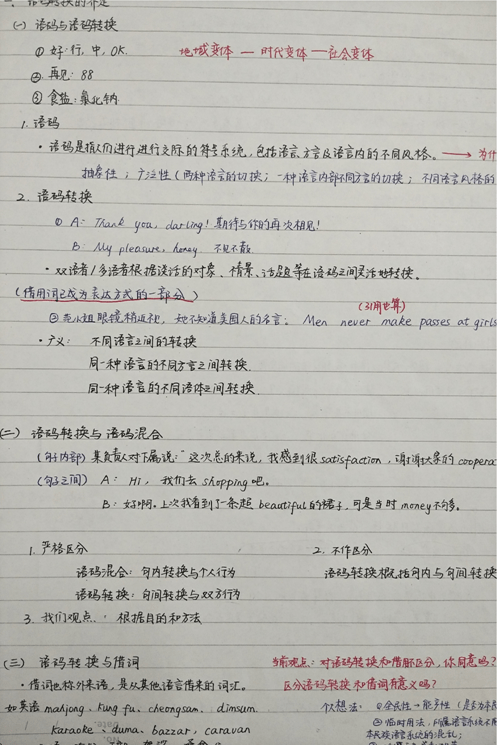 一、语码转换的界定
(一) 语码与语码转换
① 好·行, 中, OK. 地域变体 — 时代变体 — 社会变体
②. 再见: 88
③ 食盐: 氯化钠
1. 语码
· 语码是指人们进行进行交际的符号系统, 包括语言、方言及语言内的不同风格。 → 为什
抽象性; 广泛性 (两种语言的切换; 一种语言内部不同方言的切换; 不同语言风格的
2. 语码转换
① A: Thank you, darling! 期待与你的再次相见!
B: My pleasure, honey 不见不散.
· 双语者/多语者根据谈话的对象、情景、话题等在语码之间灵活地转换。
(借用词已成为表达方式的一部分) (引用也算)
小姐眼镜稍近视, 她不知道美国人的名言: Men never make passes at girls
· 广义: 不同语言之间的转换
同一种语言的不同方言之间转换.
同一种语言的不同语体之间转换.
(二) 语码转换与语码混合
(句子内部) 某负责人对下属说: "这次总的来说, 我感到很 satisfaction, 谢谢大家的 coopera
(句子之间) A: Hi, 我们去 shopping 吧。
B: 好啊. 上次我看到了一条超 beautiful 的裙子, 可是当时 money 不够。
1. 严格区分 2. 不作区分
语码混合: 句内转换与个人行为 语码转换概括句内与句间转换
语码转换: 句间转换与双方行为
3. 我们观点: 根据目的和方法
(三) 语码转换与借词 当前观点: 对语码转换和借词区分, 你同意吗?
· 借词也称外来语, 是从其他语言借来的词汇。 区分语码转换和借词有意义吗?
如英语 mahjong、kung fu、cheongsam、dimsum、 个人想法: ①全民性 → 能产性 (是否为本民
karaoke、duma、bazzar, caravan ② 临时用法, 所属语言系统不同
本民族语言系统的混乱;